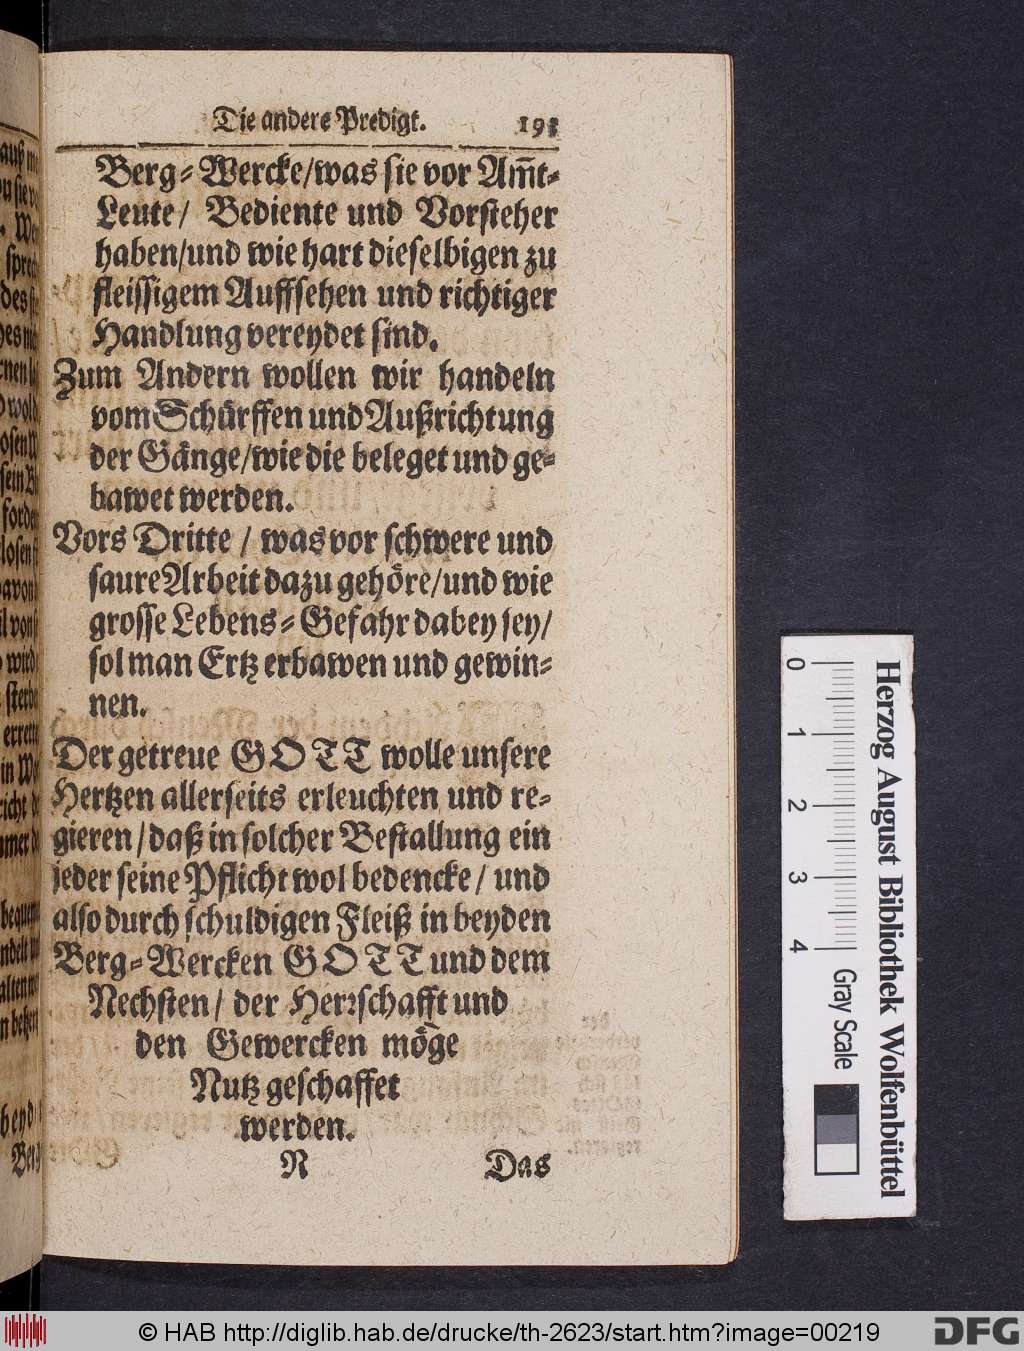 Die andere Predigt. 193
Berg-Wercke/was sie vor Am̃t-
Leute/ Bediente und Vorsteher
haben/und wie hart dieselbigen zu
fleissigem Auffsehen und richtiger
Handlung vereydet sind.
Zum Andern wollen wir handeln
vom Schürffen und Außrichtung
der Gänge/wie die beleget und ge-
bawet werden.
Vors Dritte / was vor schwere und
saure Arbeit dazu gehöre/und wie
grosse Lebens-Gefahr dabey sey/
sol man Ertz erbawen und gewin-
nen.
Der getreue GOTT wolle unsere
Hertzen allerseits erleuchten und re-
gieren/daß in solcher Bestallung ein
jeder seine Pflicht wol bedencke/ und
also durch schuldigen Fleiß in beyden
Berg-Wercken GOTT und dem
Nechsten/ der Herꝛschafft und
den Gewercken möge
Nutz geschaffet
werden.
N Das
Herzog August Bibliothek Wolfenbüttel
0 1 2 3 4
Gray Scale
© HAB http://diglib.hab.de/drucke/th-2623/start.htm?image=00219
DFG